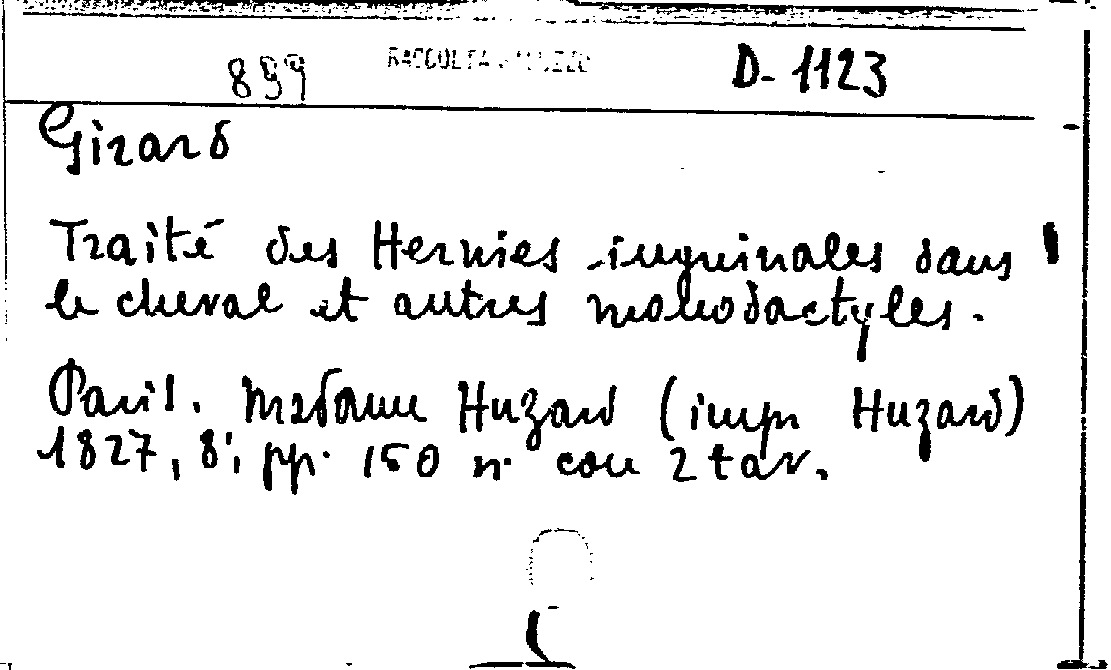 899 RACCOLTA D-1123
Girard
Traité des Hernies inguinales dans
le cheval et autres monodactyles.
Paris. Madame Huzard (imp Huzard)
1827, 8°; pp. 150 n. con 2 tav.